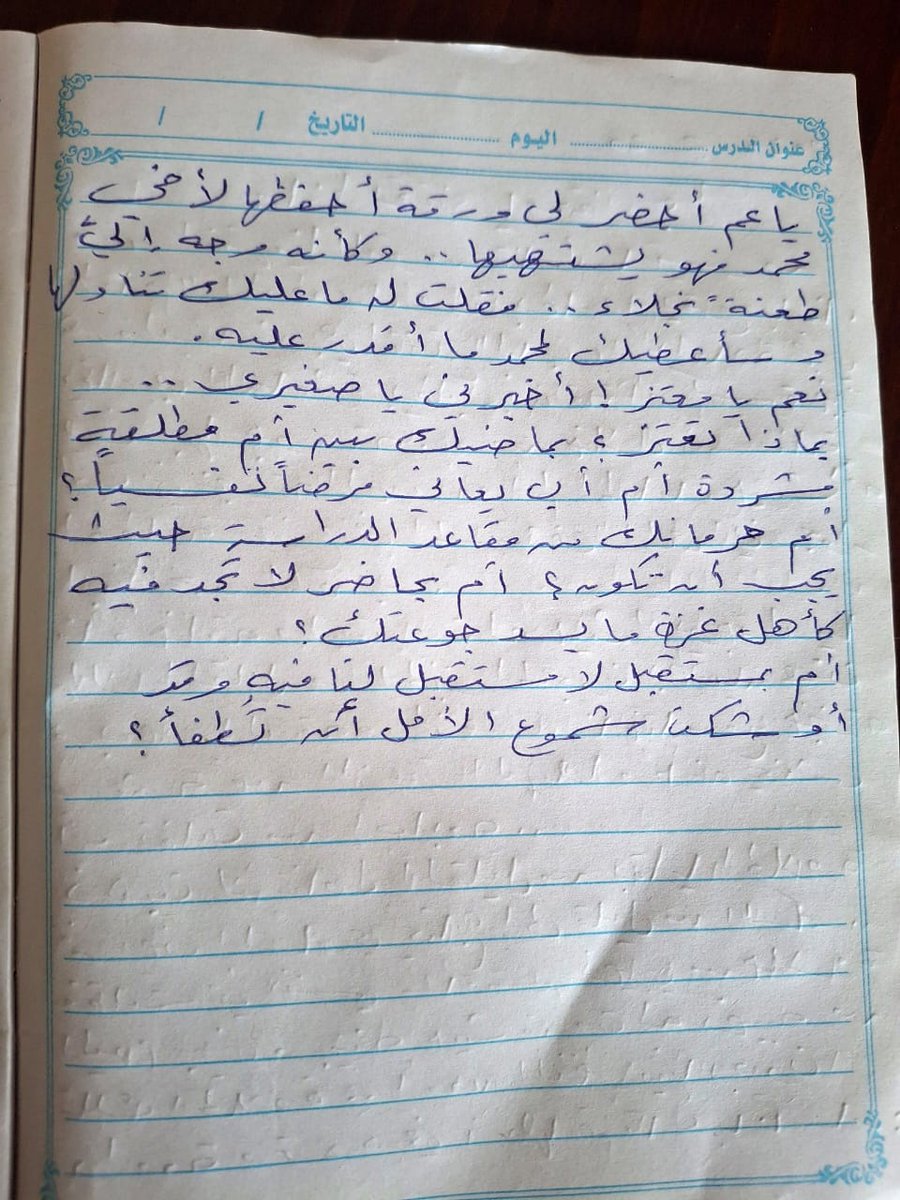 عنوان الدرس ........................ اليوم ........................ التاريخ / /
يا عم أحضر لي ورقة أحفظها لأخي
محمد فهو يشتهيها .. وكأنه وجه إليَّ
طعنةً نجلاء .. فقلت له ما عليك تناولها
وسأعطيك لمحمد ما أقدر عليه.
نعم يا معتز! أخبرني يا صغيري ..
بماذا تعتز؟ بماضيك بين أم مطلقة
مشردة أم أب يعاني مرضاً نفسياً؟
أم حرمانك من مقاعد الدراسة حيث
يجب أن تكون؟ أم بحاضر لا تجد فيه
كأهل غزة ما يسد جوعتك؟
أم بمستقبل لا مستقبل لنا فيه وقد
أوشكت شموع الأمل أن تُطفأ؟